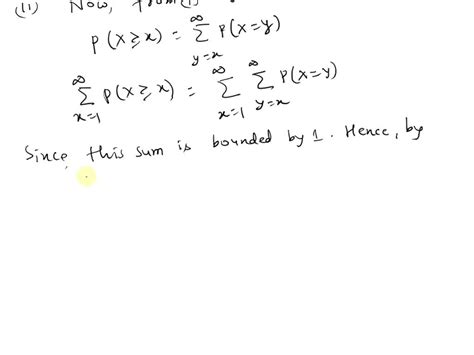 (ii) Now, from (i)
P(X≥x) = ∑_{y=x}^{∞} P(X=y)
∑_{x=1}^{∞} P(X≥x) = ∑_{x=1}^{∞} ∑_{y=x}^{∞} P(X=y)
Since, this sum is bounded by 1. Hence, by